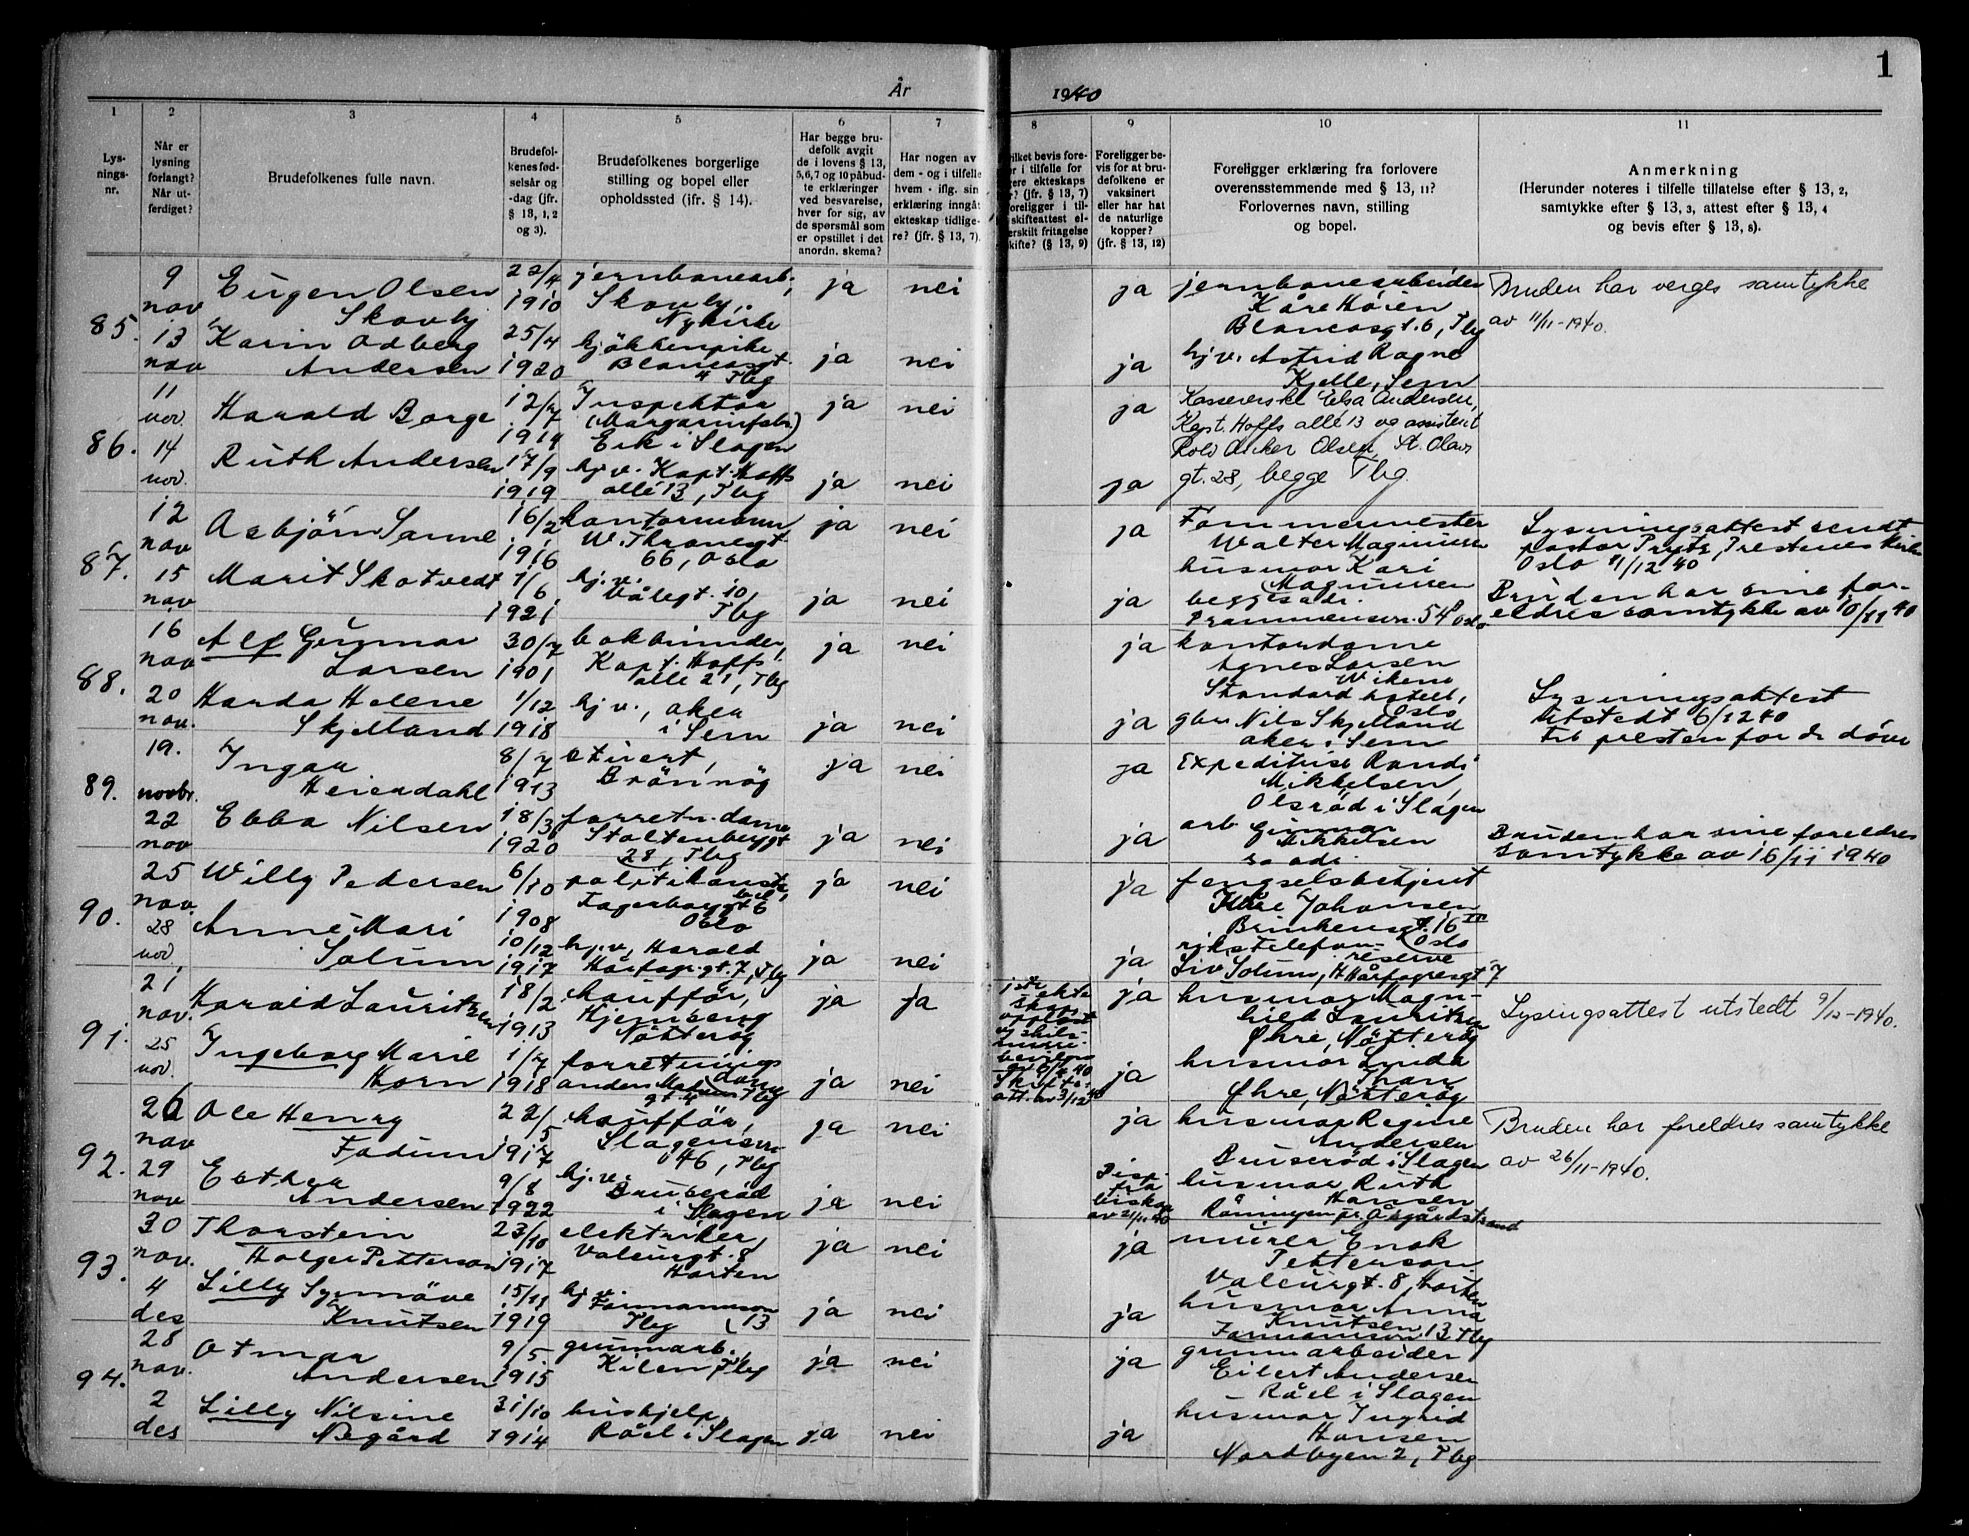 1
År
1940
1
2
3
4
5
6
7
8
9
10
11
Lys-
nings-
nr.
Når er
lysning
forlangt?
Når ut-
ferdiget?
Brudefolkenes fulle navn.
Brudefol-
kenes fød-
selsår og
-dag (jfr.
§ 13, 1, 2
og 3).
Brudefolkenes borgerlige
stilling og bopel eller
opholdssted (ifr. § 14).
Har begge bru-
defolk avgit
de i lovens § 13,
5,6,7 og 10 påbud-
te erklæringer
ved besvarelse,
hver for sig, av
de spørsmål som
er opstillet i det
anordn. skema?
Har nogen av
dem - og i tilfelle
hvem - iflg. sin
erklæring inngåt
ekteskap tidlige-
re? (jfr. § 13, 7).
ilket bevis fore-
r i tilfelle for
gere ekteskaps
r? (jfr. § 13, 7)
oreligger i til-
skifteattest el-
erskilt fritagelse
kifte? (§ 13, 9)
Foreligger be-
vis for at bru-
defolkene er
vaksinert
eller har hat
de naturlige
kopper?
(jfr. § 13, 12)
Foreligger erklæring fra forlovere
overensstemmende med § 13, 11?
Forlovernes navn, stilling
og bopel.
Anmerkning
(Herunder noteres i tilfelle tillatelse efter § 13, 2,
samtykke efter § 13, 3, attest efter § 13, 4
og bevis efter § 13, 8).
85.
9
nov
Eugen Olsen
Skovly
22/4
1910
jernbanearb.,
Skovly,
Nykirke
ja
nei
ja
jernbanearbeider
Kåre Høien
Blancasgt. 6, Tbg
Bruden har verges samtykke
av 11/11-1940.
13
nov
Karin Odberg
Andersen
25/4
1920
kjökkenpike
Blancasgt.
4 Tbg
ja
nei
ja
hj v. Astrid Ragne
Kjelle, Sem
86.
11
nov.
Harald Borge
12/7
1914
Inspektør
(Margarinfabr.)
Eik i Slagen
ja
nei
ja
Kassererske Elsa Andersen,
Kapt. Hoffs allé 13 og assistent
Rolv Anker Olsen, St. Olavs
gt. 28, begge Tbg.
14
nov.
Ruth Andersen
17/9
1919
hj v. Kapt. Hoffs
allé 13, Tbg
ja
nei
ja
87.
12
nov
Asbjörn Sanne
16/2
1916
kontormann
W. Thranesgt
66, Oslo
ja
nei
ja
Tömmermester
Walter Magnussen
husmor Kari
Magnussen
begges adr.
Drammensvn. 54 Oslo
Lysningsattest sendt
pastor Prytz, Prestenes kirke
Oslo 4/12 40
15
nov
Marit Skotvedt
1/6
1921
hj. v.
Vålegt. 10
Tbg
ja
nei
ja
Bruden har sine for-
eldres samtykke av 10/11 40
88.
16
nov
Alf Gunnar
Larsen
30/7
1901
bokbinder,
Kapt. Hoffs
alle 21, Tbg
ja
nei
ja
kontordame
Agnes Larsen
Wiken
Standard hotell,
Oslo
20
nov.
Harda Helene
Skjelland
1/12
1918
hj v., aker
i Sem
ja
nei
ja
gbr. Nils Skjelland
aker i Sem
Lysningsattest
utstedt 6/12 40
til presten for de döve
89.
19.
novbr.
Ingar
Heierdahl
8/7
1913
stuert,
Brönnög
ja
nei
ja
Expeditrise Randi
Mikkelsen
Olsröd i Slagen
22
nov
Ebba Nilsen
18/3
1920
forretn. dame
Stoltenbergt
28, Tbg
ja
nei
ja
arb Gunnar
Mikkelsen
s adr.
Bruden har sine foreldres
samtykke av 16/11 1940
90.
25
nov.
Willy Pedersen
6/10
1908
politikonst.,
Fagerborggt 6
Oslo
ja
nei
ja
fengselsbetjent
Johansen
Brinkensgt. 16 III
Oslo
28
nov.
Anne Mari
Solum
10/12
1917
hj. v. Harald
Hårfagr. gt. 7, Tbg
ja
nei
ja
rikstelefon-
reserve
Liv Solum, H Hårfagresgt 7
91.
21
nov.
Harald Lauritzen
18/2
1913
chaufför,
Hjemseng
Nötteröy
ja
ja
ekte
skaps
opplöst
v. skils-
misse
bevilgn.
Skifte-
att. av 3/12 40
ja
husmor Magn-
hild Lauritzen
Öhre, Nötteröy
Lysingsattest utstedt 9/12-1940.
25
nov.
Ingeborg Marie
Horn
1/7
1918
forretnings
dame
Anders Madsens
gt 4 Tbg
ja
nei
ja
husmor Lynda
Thon
Öhre, Nötteröy
92.
26
nov
Ole Henry
Fadum
22/5
1917
chaufför,
Slagensvn
46, Tbg
ja
nei
ja
husmor Regine
Andersen
Bruseröd i Slagen
Bruden har foreldres samtykke
av 26/11-1940.
29
nov
Esther
Andersen
9/8
1922
hj. v.
Bruseröd
i Slagen
ja
nei
Disp.
fra
biskop
av 21/11 40
husmor Ruth
Hansen
Röningen pr. Åsgårdstrand
93.
30
nov.
Thorstein
Holger Petterson
23/10
1917
elektriker,
Valeurgt. 8
Horten
ja
nei
ja
murer Enok
Petterson
Valeurgt. 8, Horten
4
des
Lilly Synnöve
Knutsen
15/11
1919
hj v.
Farmannsvn
Tbg 13
ja
nei
ja
husmor Anna
Knutsen
Farmannsvn 13 Tbg
94.
28
nov.
Otmar
Andersen
9/5.
1915
gummarb.,
Kilen, Tbg
ja
nei
ja
gummarbeider
Eilert Andersen
Råel i Slagen
2
des
Lilly Nilsine
Nsgård
31/10
1914
hushjelp,
Råel i Slagen
ja
nei
ja
husmor Ingrid
Hansen
Nordbyen 2, Tbg